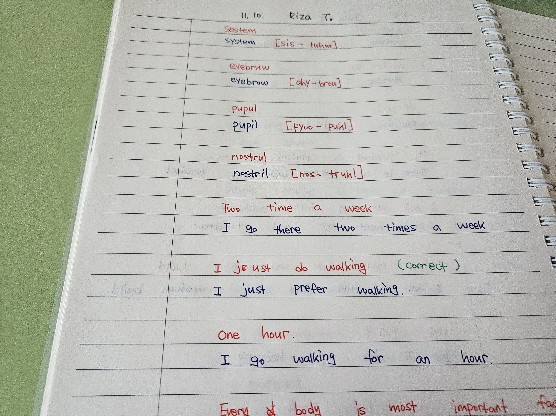 11. 10 Riza T.
sestem
system [sis - tuhm]
eyebruw
eyebrow [ahy-brou]
pupul
pupil [pyoo - puhl]
nostrul
nostril [nos - truhl]
Two time a week
I go there two times a week
I jsust do walking (correct)
I just prefer walking.
One hour.
I go walking for an hour.
Every of body is most important